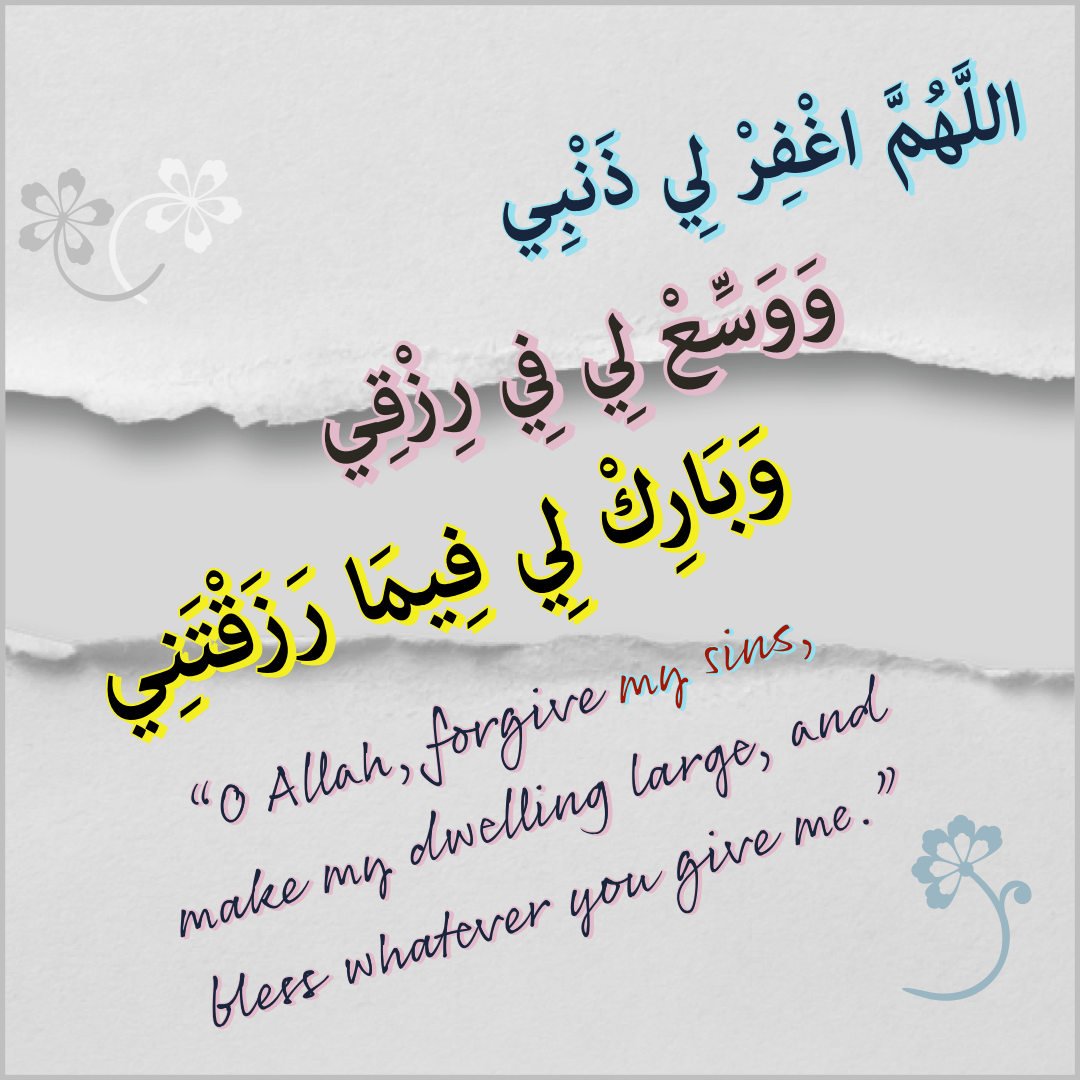 اللَّهُمَّ اغْفِرْ لِي ذَنْبِي
وَوَسِّعْ لِي فِي رِزْقِي
وَبَارِكْ لِي فِيمَا رَزَقْتَنِي
“O Allah, forgive my sins,
make my dwelling large, and
bless whatever you give me.”